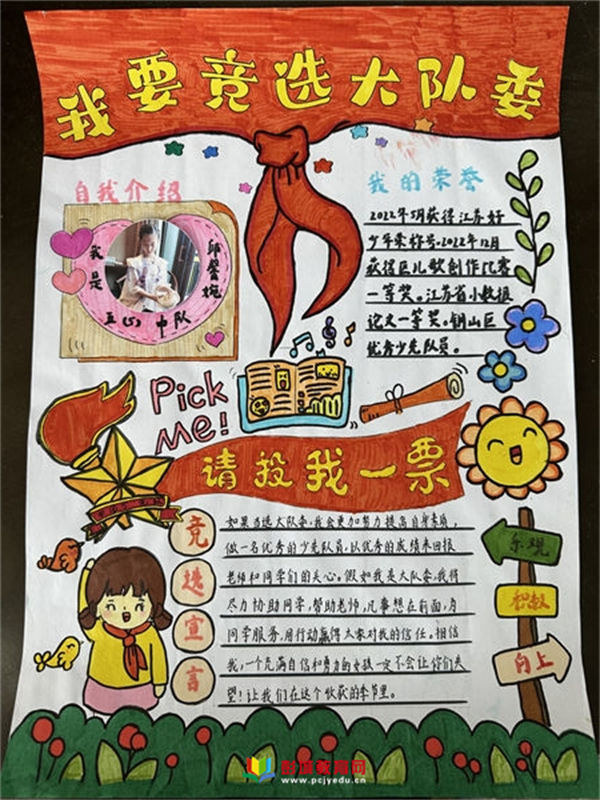 我要竞选大队委
自我介绍
我是
五(5)中队
我的荣誉
2022年5月获得江苏好
少年荣称号。2022年12月
获得区儿歌创作比赛
一等奖。江苏省小数报
论文一等奖。铜山区
优秀少先队员。
Pick
me!
请投我一票
竞选宣言
如果当选大队委,我会更加努力提高自身素质,
做一名优秀的少先队员,以优秀的成绩来回报
老师和同学们的关心。假如我是大队委,我将
尽力协助同学,帮助老师,凡事想在前面,为
同学服务,用行动赢得大家对我的信任。相信
我,一个充满自信和努力的女孩一定不会让你们失
望!让我们在这个收获的季节里。
乐观
积极
向上
彭城教育网
www.pcjyedu.cn